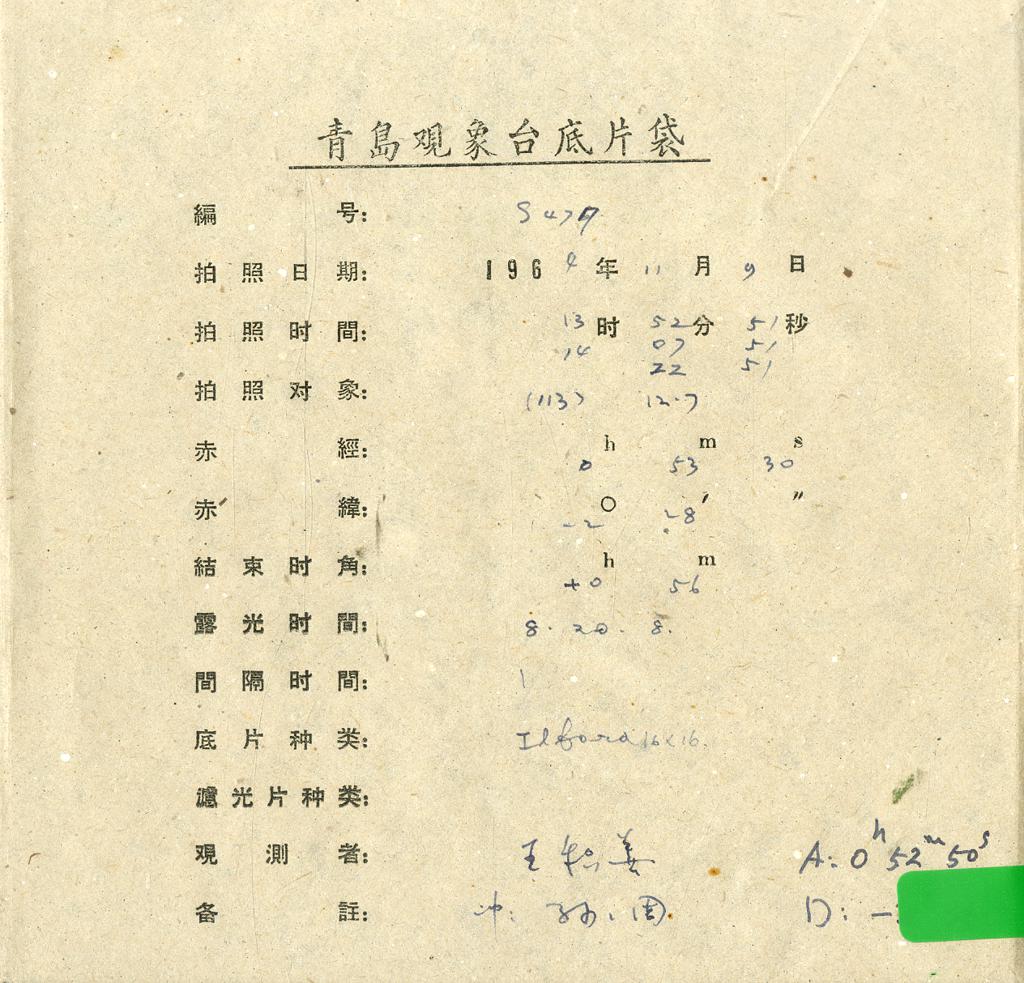 青島观象台底片袋
編号: S477
拍照日期: 1964年11月9日
拍照时間: 13时52分51秒
14 07 51
22 51
拍照对象: (113) 12.7
赤經: 0h 53m 30s
赤緯: -2° -8′ ″
結束时角: +0h 56m
露光时間: 8. 20. 8.
間隔时間: 1
底片种类: Ilford 16×16.
濾光片种类:
观測者: 王 姜 A: 0h 52m 50s
备註: 冲: 孙、周. D: -